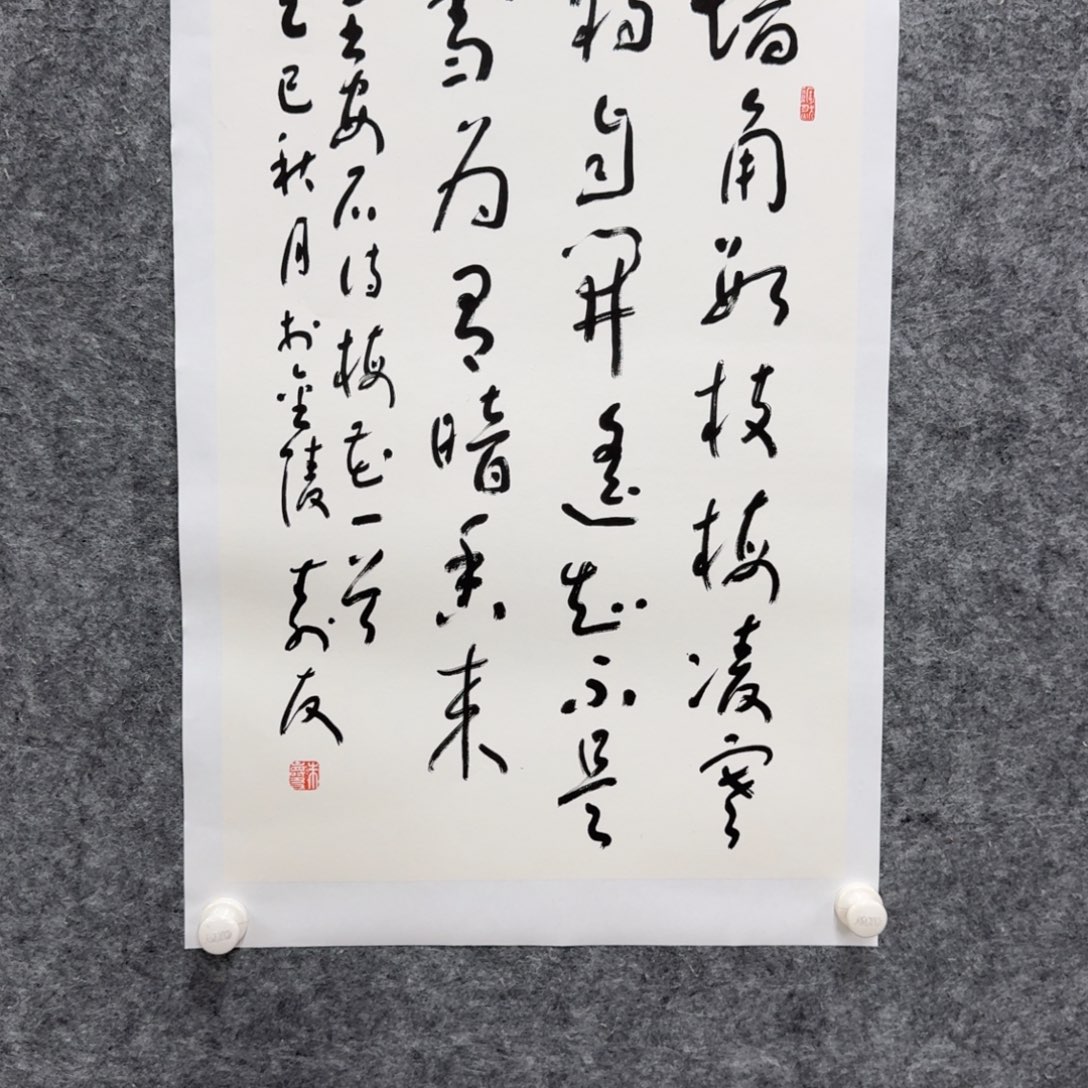 墙角数枝梅凌寒
独自开遥知不是
雪为有暗香来
王安石诗梅花一首
乙巳秋月於金陵 寿友